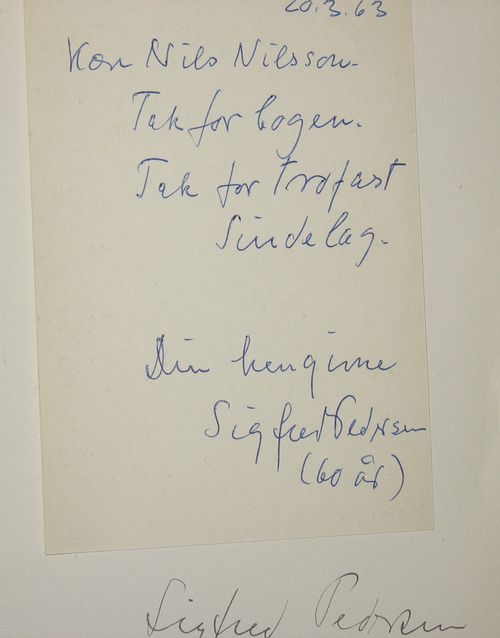 20.3.63
Kære Nils Nilsson.
Tak for bogen.
Tak for trofast
Sindelag.
Din hengivne
Sigfred Pedersen
(60 år)
Sigfred Pedersen